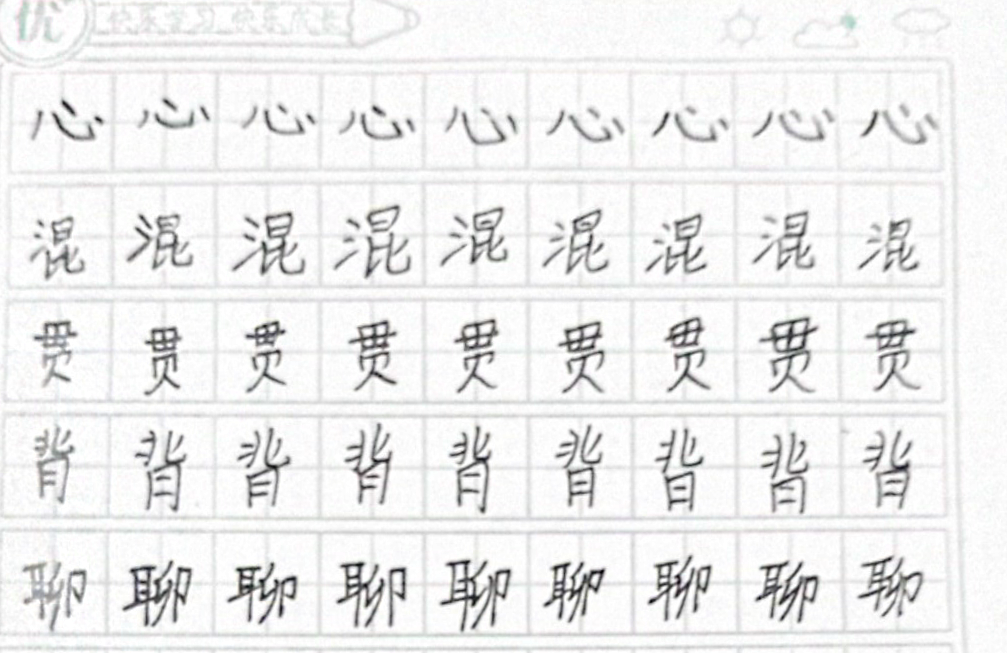 优 快乐学习 快乐成长
心心心心心心心心心
混混混混混混混混混
贯贯贯贯贯贯贯贯贯
背背背背背背背背背
聊聊聊聊聊聊聊聊聊